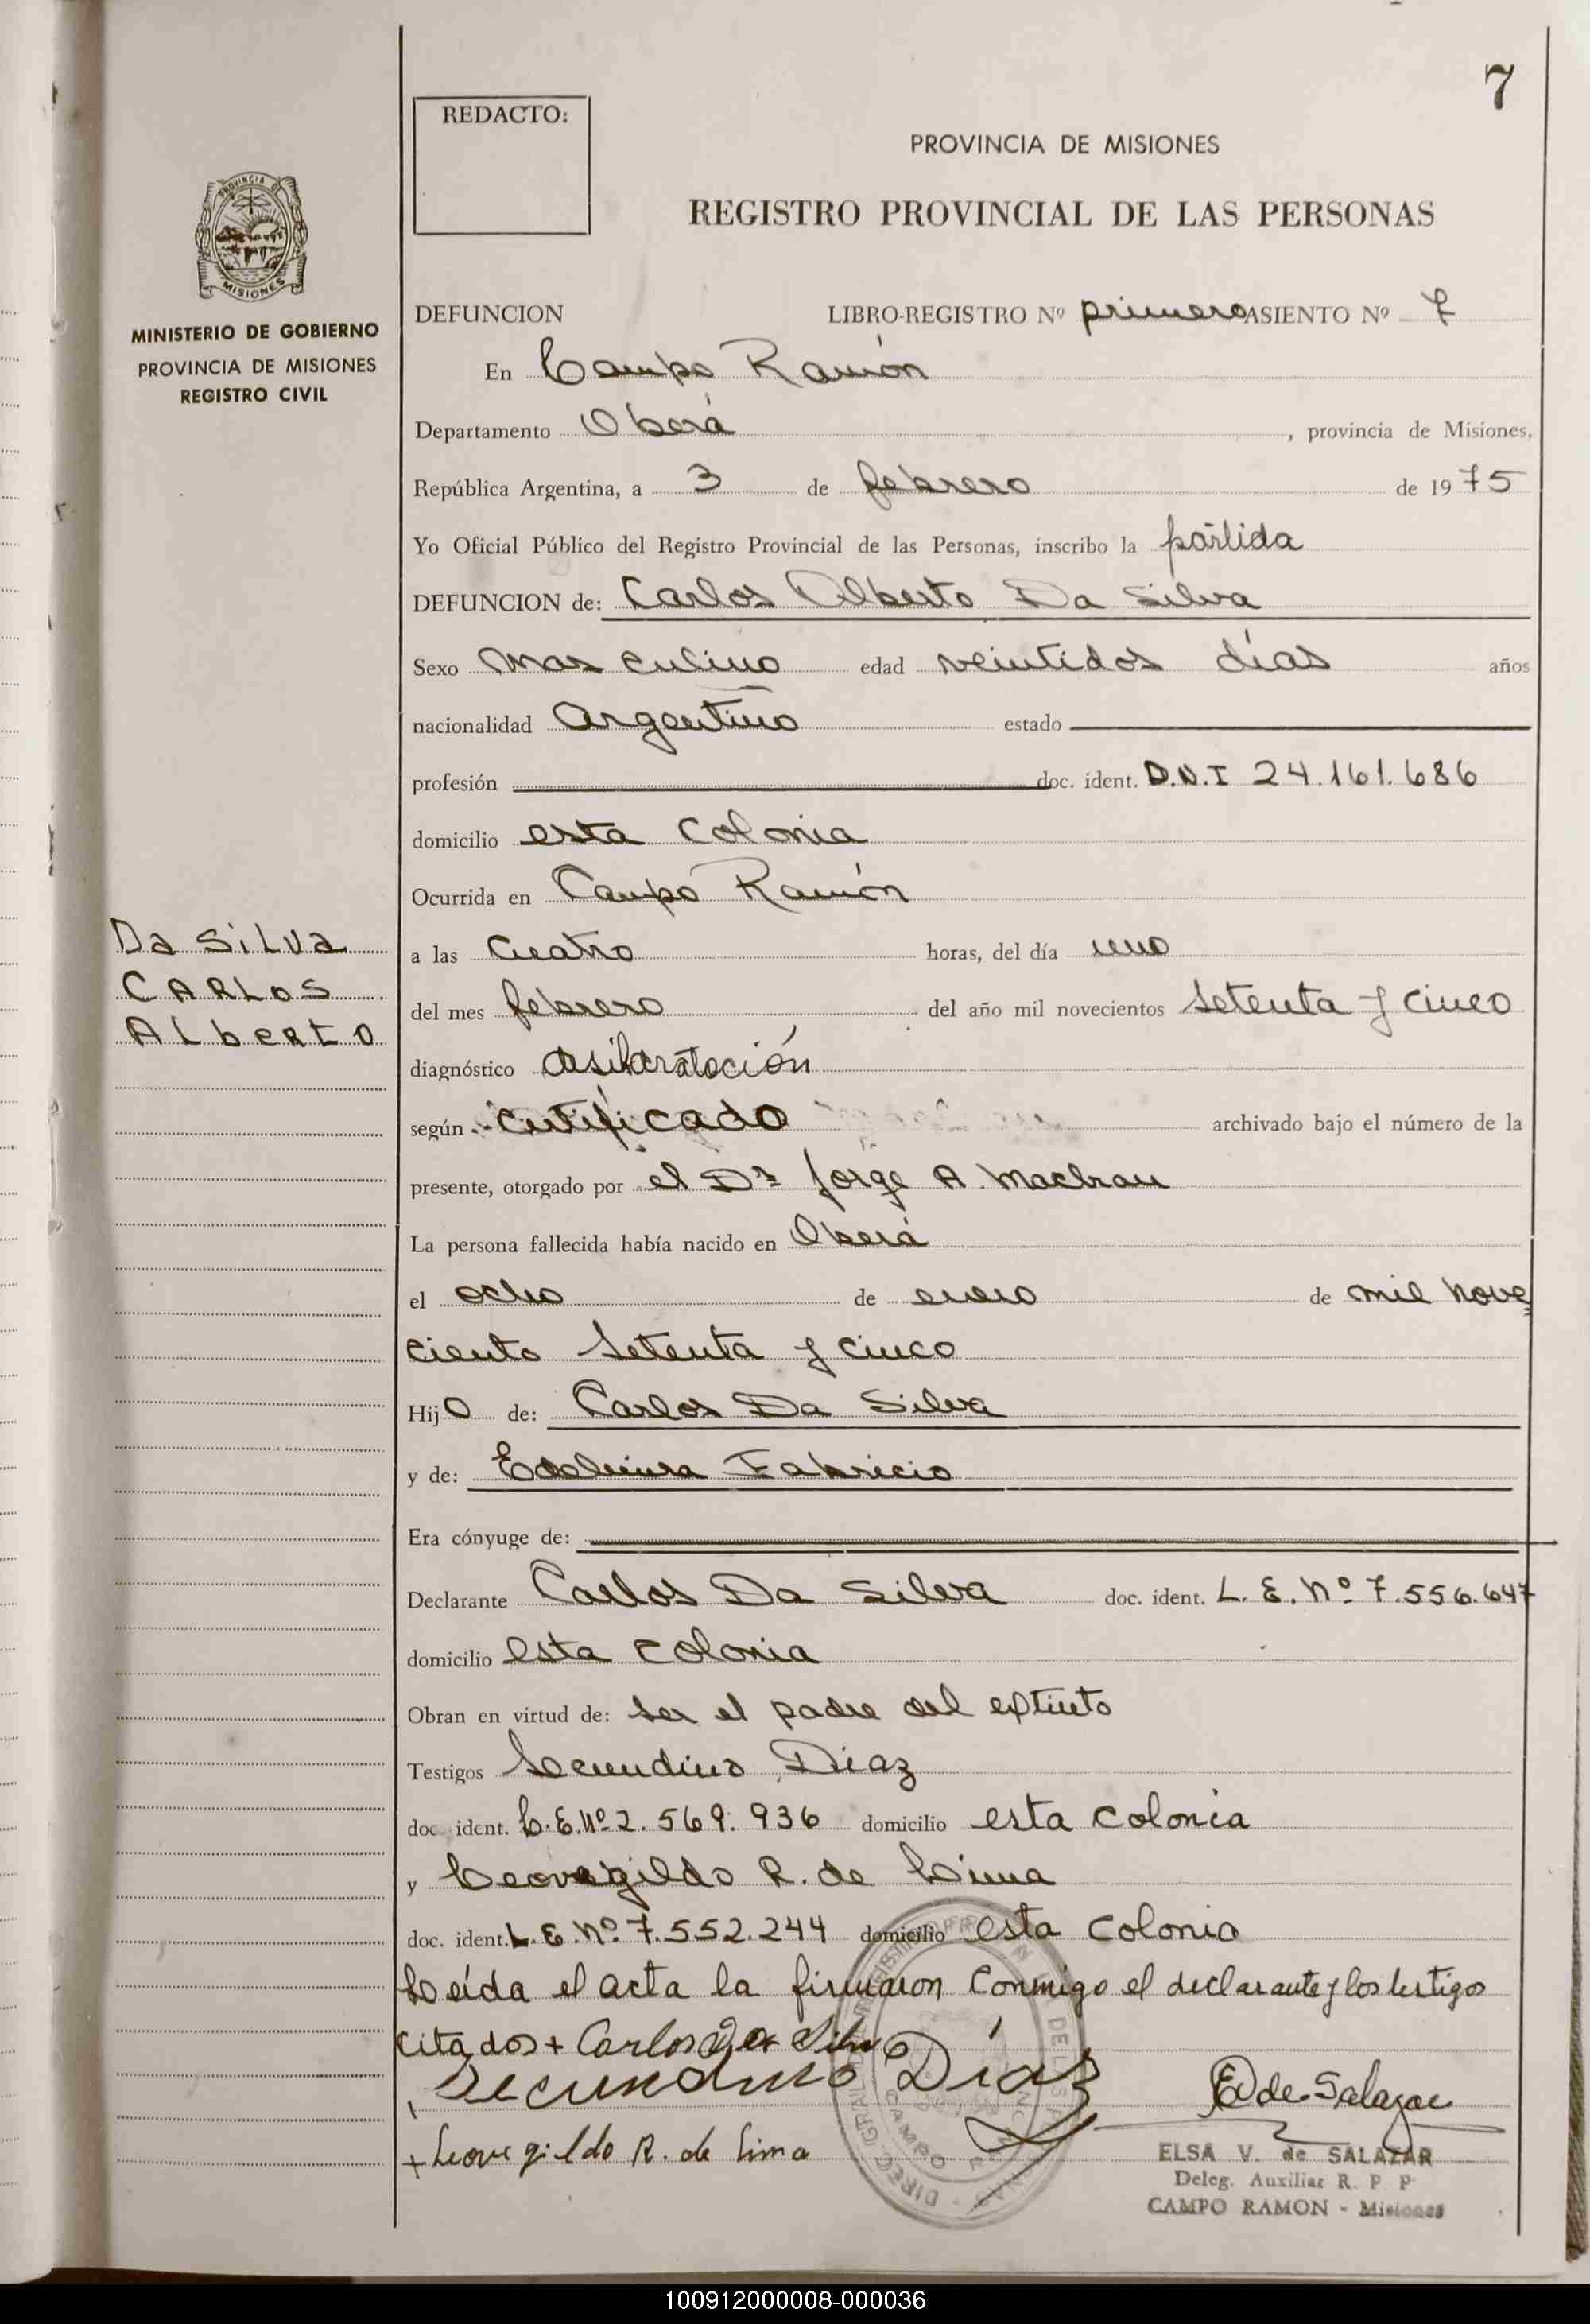 7
REDACTO:
PROVINCIA DE MISIONES
REGISTRO PROVINCIAL DE LAS PERSONAS
PROVINCIA DE
MISIONES
MINISTERIO DE GOBIERNO
PROVINCIA DE MISIONES
REGISTRO CIVIL
DEFUNCION LIBRO-REGISTRO Nº primero ASIENTO Nº 7
En Campo Ramón
Departamento Oberá, provincia de Misiones,
República Argentina, a 3 de febrero de 1975
Yo Oficial Público del Registro Provincial de las Personas, inscribo la partida
DEFUNCION de: Carlos Alberto Da Silva
Sexo masculino edad veintidos días años
nacionalidad Argentino estado
profesión doc. ident. D.N.I 24.161.686
domicilio esta Colonia
Ocurrida en Campo Ramón
Da SILVA
CARLOS
ALbERTO
a las Cuatro horas, del día uno
del mes febrero del año mil novecientos Setenta y cinco
diagnóstico
según Certificado archivado bajo el número de la
presente, otorgado por el Dr Jorge A.
La persona fallecida había nacido en Oberá
el ocho de enero de mil nove
ciento Setenta y cinco
Hijo de: Carlos Da Silva
y de: Fabricio
Era cónyuge de:
Declarante Carlos Da Silva doc. ident. L. E. Nº 7.556.647
domicilio esta colonia
Obran en virtud de: ser el padre del extinto
Testigos Secundino Diaz
doc. ident. L.E.Nº 2.569.936 domicilio esta Colonia
y Leovegildo R. de Lima
doc. ident. L.E.Nº 7.552.244 domicilio esta Colonia
Leída el acta la firmaron Conmigo el declarante y los testigos
citados + Carlos Da Silva
Secundino Díaz
E de Salazar
+ Leovegildo R. de Lima
ELSA V. de SALAZAR
Deleg. Auxiliar R. P. P
CAMPO RAMON - Misiones
100912000008-000036